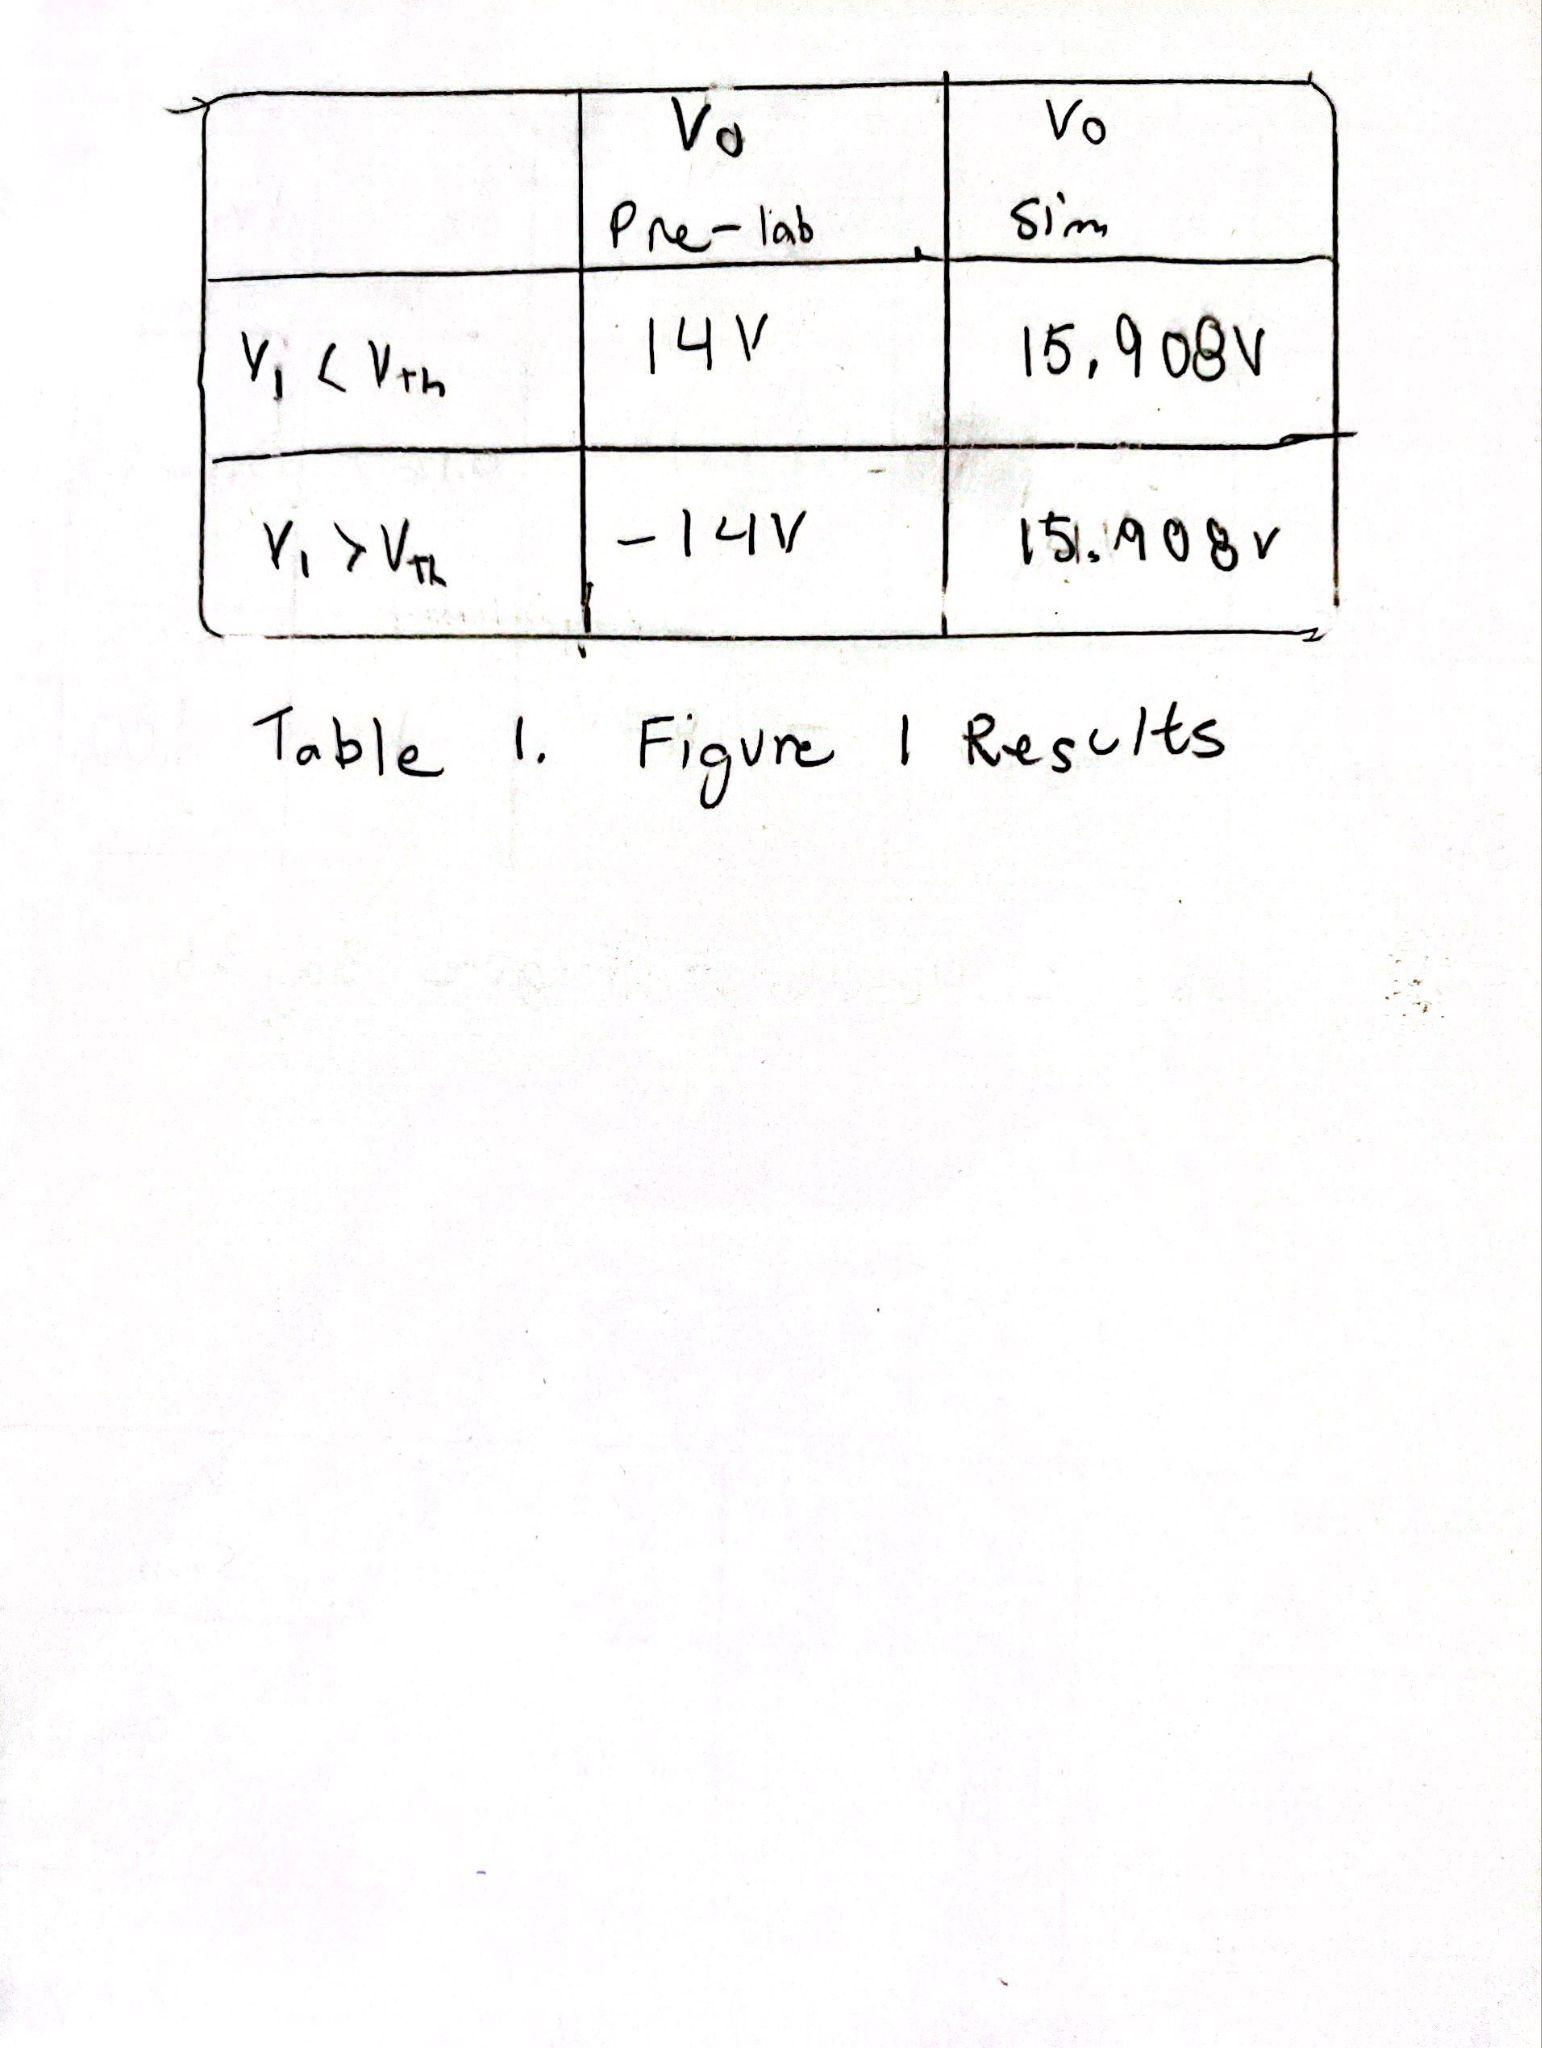 Vo Vo
Pre-lab Sim
V1 < VTh 14V 15.908V
V1 > VTh -14V 15.908V
Table 1. Figure 1 Results